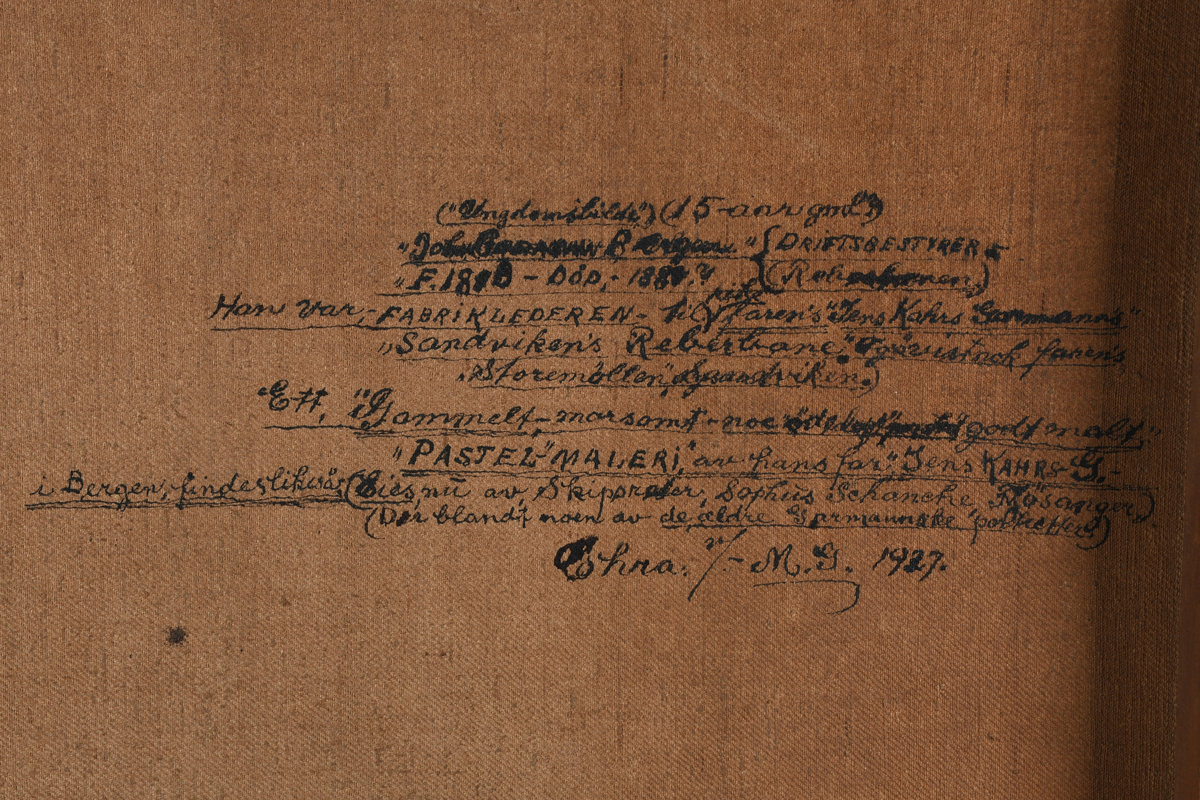 ("Ungdomsbilde") (15-aar gml.")
"Joh. Bergen." { DRIFTSBESTYRER
"F. 18 - Død, - 188 .? (Reb
Han var, - FABRIKLEDEREN - til farens "Jens Kahrs Germanns"
"Sandviken's Reberbane" farens
"Storemøllen", Sandviken.)
Ett, "Gammelt - morsomt - noe godt malt,"
"PASTEL" MALERI, av hans far "Jens KAHRS G. -
i Bergen, findes likvæl (Eies nu av Skipsreder, Sophus Schancke, Fjøsanger,)
(Der blandt noen av de ældre Germannske portretter)
Chra. v/- M. G. 1927.